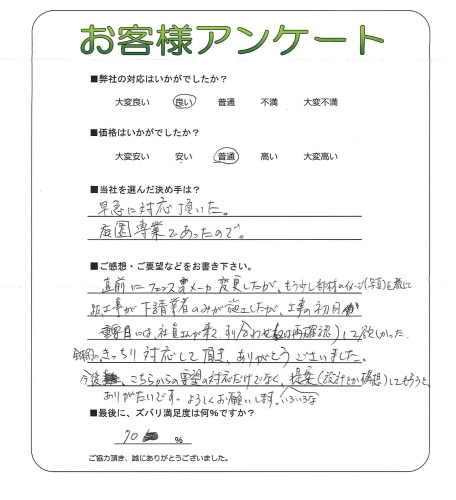 お客様アンケート
■弊社の対応はいかがでしたか？
大変良い 良い 普通 不満 大変不満
■価格はいかがでしたか？
大変安い 安い 普通 高い 大変高い
■当社を選んだ決め手は？
早急に対応頂いた。
庭園専業であったので。
■ご感想・ご要望などをお書き下さい。
直前にフェンスメーカ変更したが、もう少し部材のイメージ(写真)を
工事が下請業者のみが施工したが、工事の初日
には、社員さんが来て、すり合わせ(又は再確認)して欲しかった。
きっちり対応して頂き、ありがとうございました。
今後、こちらからの要望の対応だけでなく、提案(設計とか構想)してもらうと、
ありがたいです。よろしくお願いします。いろいろな
■最後に、ズバリ満足度は何%ですか？
70 %
ご協力頂き、誠にありがとうございました。